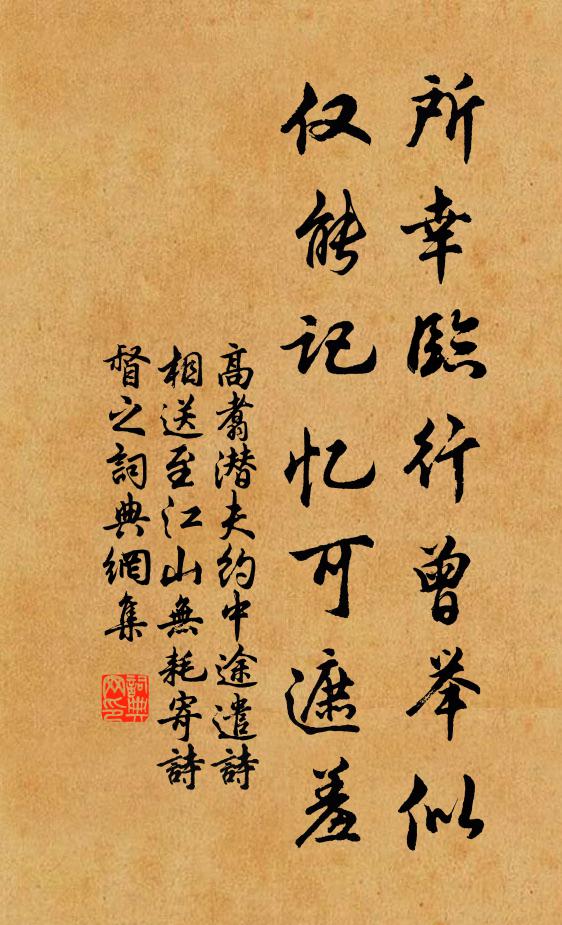 所幸臨行曾举似
仅能记忆可遮羞
高翥潜夫约中途遣詩
相送至江山無耗寄詩
督之詞典網集
詞典网印